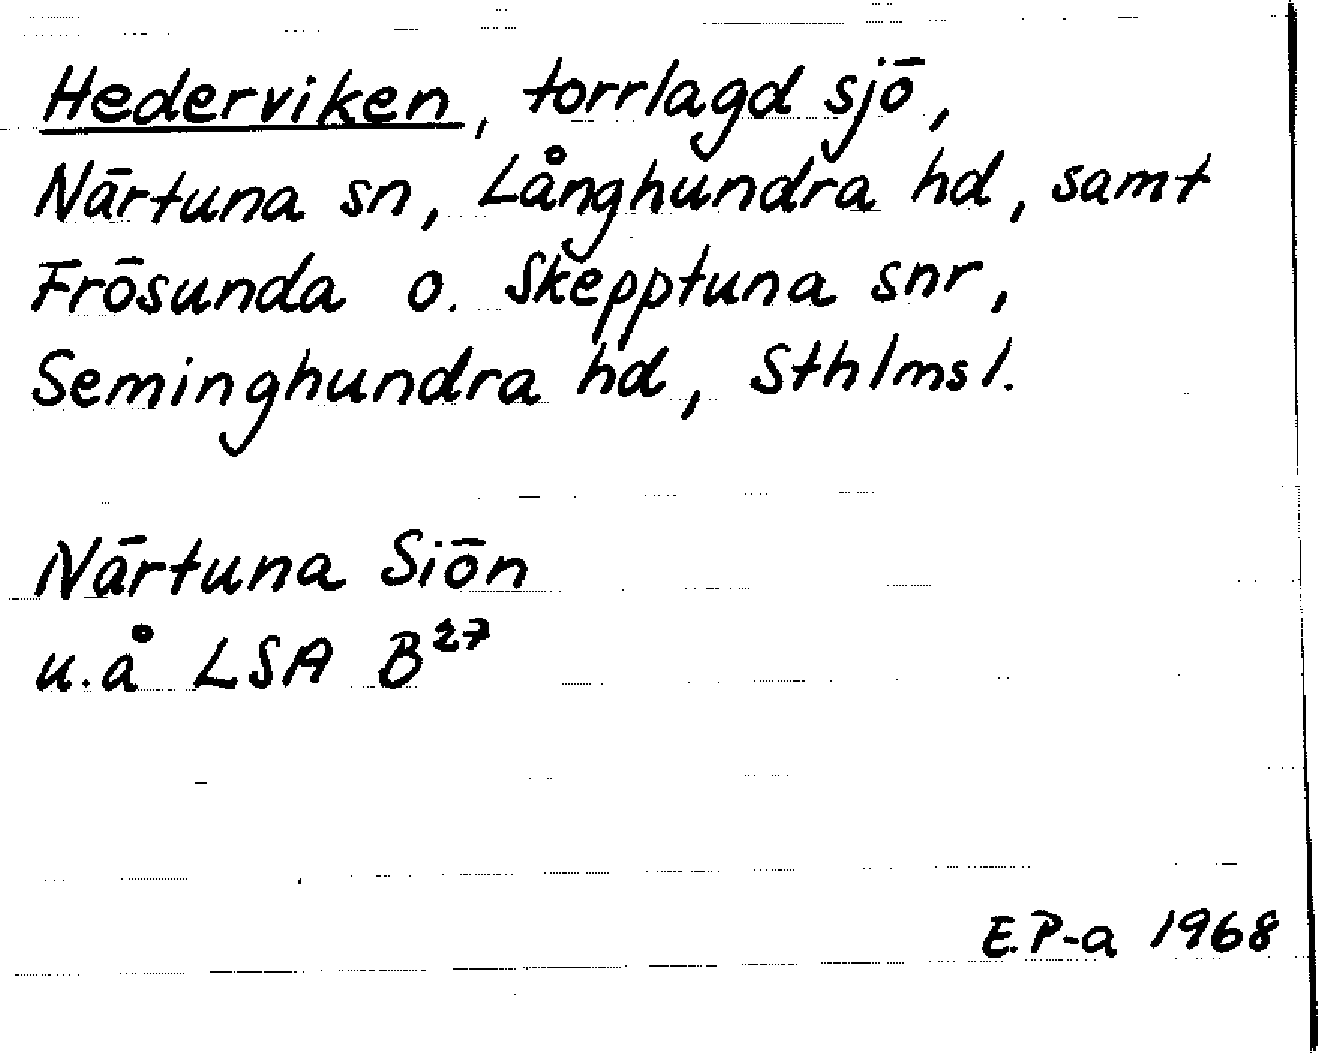 Hederviken, torrlagd sjö,
Närtuna sn, Långhundra hd, samt
Frösunda o. Skepptuna snr,
Seminghundra hd, Sthlms l.
Närtuna Siön
u.å LSA B²⁷
E.P-a 1968